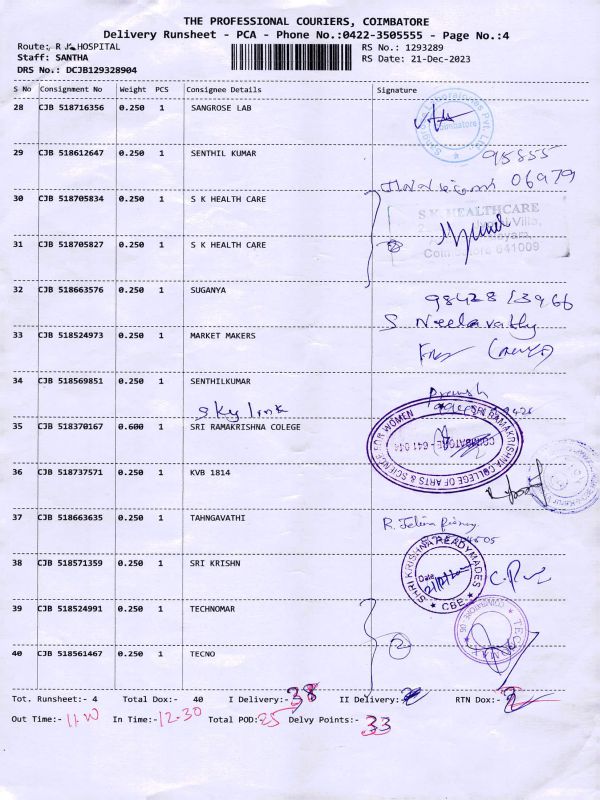 THE PROFESSIONAL COURIERS, COIMBATORE
Delivery Runsheet - PCA - Phone No.:0422-3505555 - Page No.:4
Route: R K HOSPITAL
RS No.: 1293289
Staff: SANTHA
RS Date: 21-Dec-2023
DRS No.: DCJB129328904
S No Consignment No Weight PCS Consignee Details Signature
28 CJB 518716356 0.250 1 SANGROSE LAB
29 CJB 518612647 0.250 1 SENTHIL KUMAR
95855
06979
30 CJB 518705834 0.250 1 S K HEALTH CARE
S.K. HEALTHCARE
31 CJB 518705827 0.250 1 S K HEALTH CARE
Coimbatore 641009
32 CJB 518663576 0.250 1 SUGANYA
98428 13966
33 CJB 518524973 0.250 1 MARKET MAKERS
S Neelavathy
34 CJB 518569851 0.250 1 SENTHILKUMAR
Sky link
35 CJB 518370167 0.600 1 SRI RAMAKRISHNA COLEGE
SRI RAMAKRISHNA COLLEGE OF ARTS & SCIENCE FOR WOMEN
COIMBATORE - 641 044
36 CJB 518737571 0.250 1 KVB 1814
37 CJB 518663635 0.250 1 TAHNGAVATHI
38 CJB 518571359 0.250 1 SRI KRISHN
SHRI KRISHNA READYMADES
Date
★ CBE ★
39 CJB 518524991 0.250 1 TECHNOMAR
40 CJB 518561467 0.250 1 TECNO
2
Tot. Runsheet:- 4 Total Dox:- 40 I Delivery:- 38 II Delivery:- RTN Dox:- 2
Out Time:- 11.00 In Time:- 12.30 Total POD: 25 Delvy Points:- 33